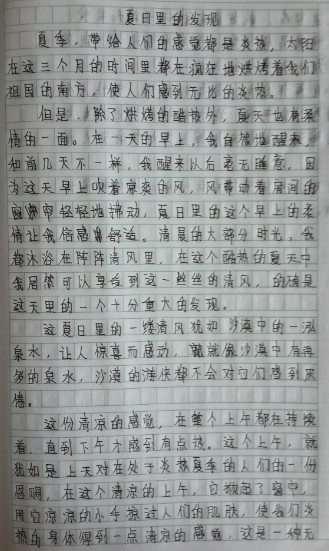 夏日里的发现
夏季,带给人们的感觉都是炎热,太阳
在这三个月的时间里都在疯狂地烘烤着我们
祖国的南方,使人们感到无比的炎热。
但是,除了烘烤的酷热外,夏天也有柔
情的一面。在一天的早上,我自然地醒来,
和前几天不一样,我醒来以后毫无睡意,因
为这天早上吹着凉爽的风,风带动着房间的
窗帘轻轻地拂动,夏日里的这个早上的柔
情让我倍感舒适。清晨的大部分时光,我
都沐浴在阵阵清风里,在这个酷热的夏天中
我居然可以享受到这一丝丝的清风,的确是
这天里的一个十分重大的发现。
这夏日里的一缕清风犹如沙漠中的一泓
泉水,让人惊喜而感动,就像沙漠中有再
多的泉水,沙漠的游侠都不会对它们感到厌
倦。
这份清凉的感觉,在整个上午都在持续
着,直到下午才感到有点热。这个上午,就
犹如是上天对在处于炎热夏季的人们的一份
恩赐,在这个清凉的上午,它掀起了窗帘,
用它凉凉的小手掠过人们的肌肤,使我们炎
热的身体得到一点清凉的感觉,这是一种无